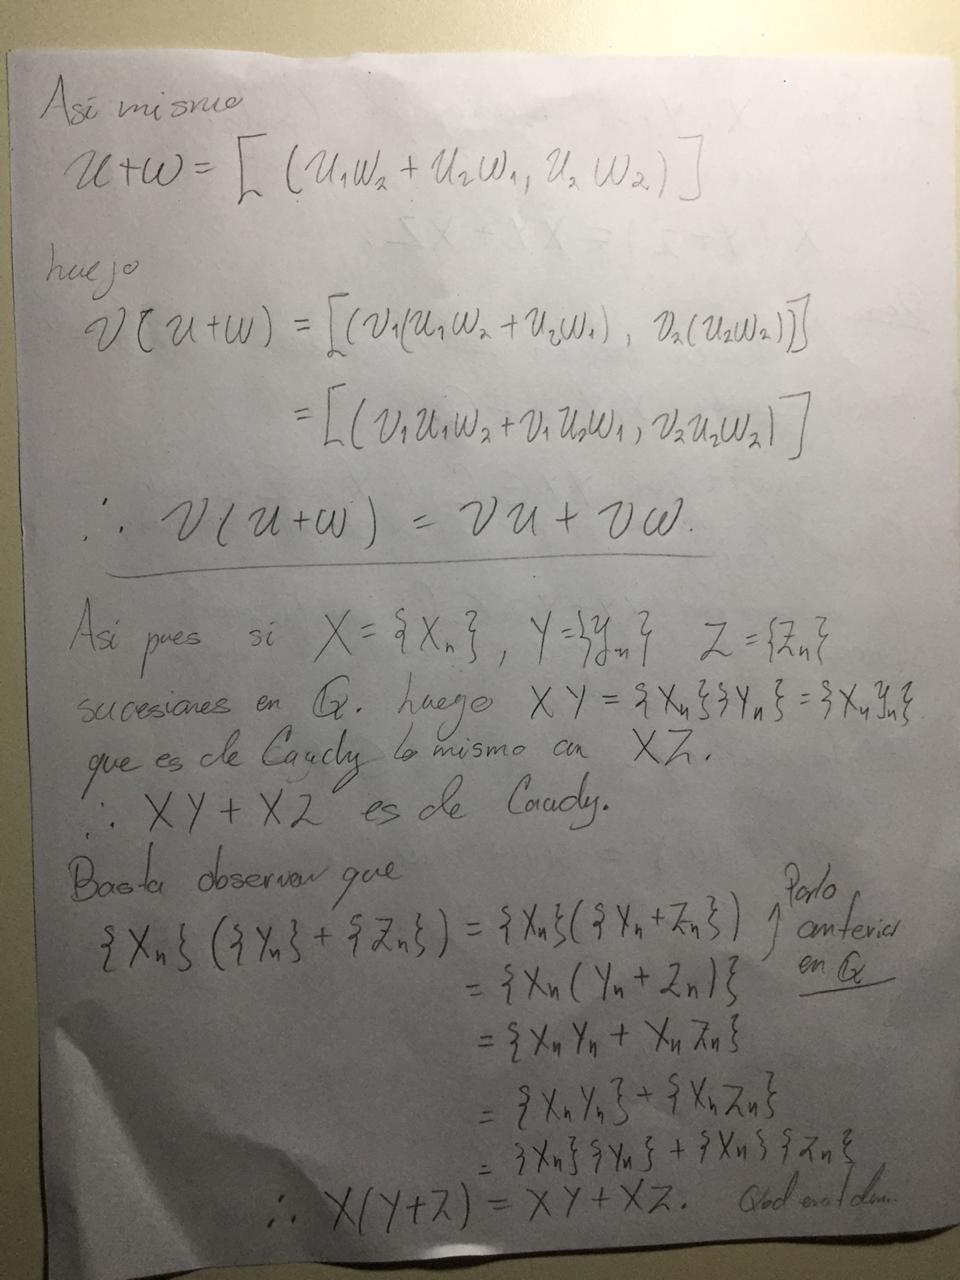 Así mismo
u+w = [(u₁w₂ + u₂w₁, u₂w₂)]
luego
v(u+w) = [(v₁(u₁w₂ + u₂w₁), v₂(u₂w₂))]
= [(v₁u₁w₂ + v₁u₂w₁, v₂u₂w₂)]
∴ v(u+w) = vu + vw.
Así pues si X = {Xₙ}, Y = {yₙ} Z = {Zₙ}
sucesiones en Q. luego XY = {Xₙ}{Yₙ} = {Xₙyₙ}
que es de Caudy lo mismo an XZ.
∴ XY + XZ es de Caudy.
Basta observar que
{Xₙ}({Yₙ} + {Zₙ}) = {Xₙ}({Yₙ + Zₙ}) ↑ Por lo
= {Xₙ(Yₙ + Zₙ)} anterior
en Q
= {XₙYₙ + XₙZₙ}
= {XₙYₙ} + {XₙZₙ}
= {Xₙ}{Yₙ} + {Xₙ}{Zₙ}
∴ X(Y+Z) = XY + XZ.